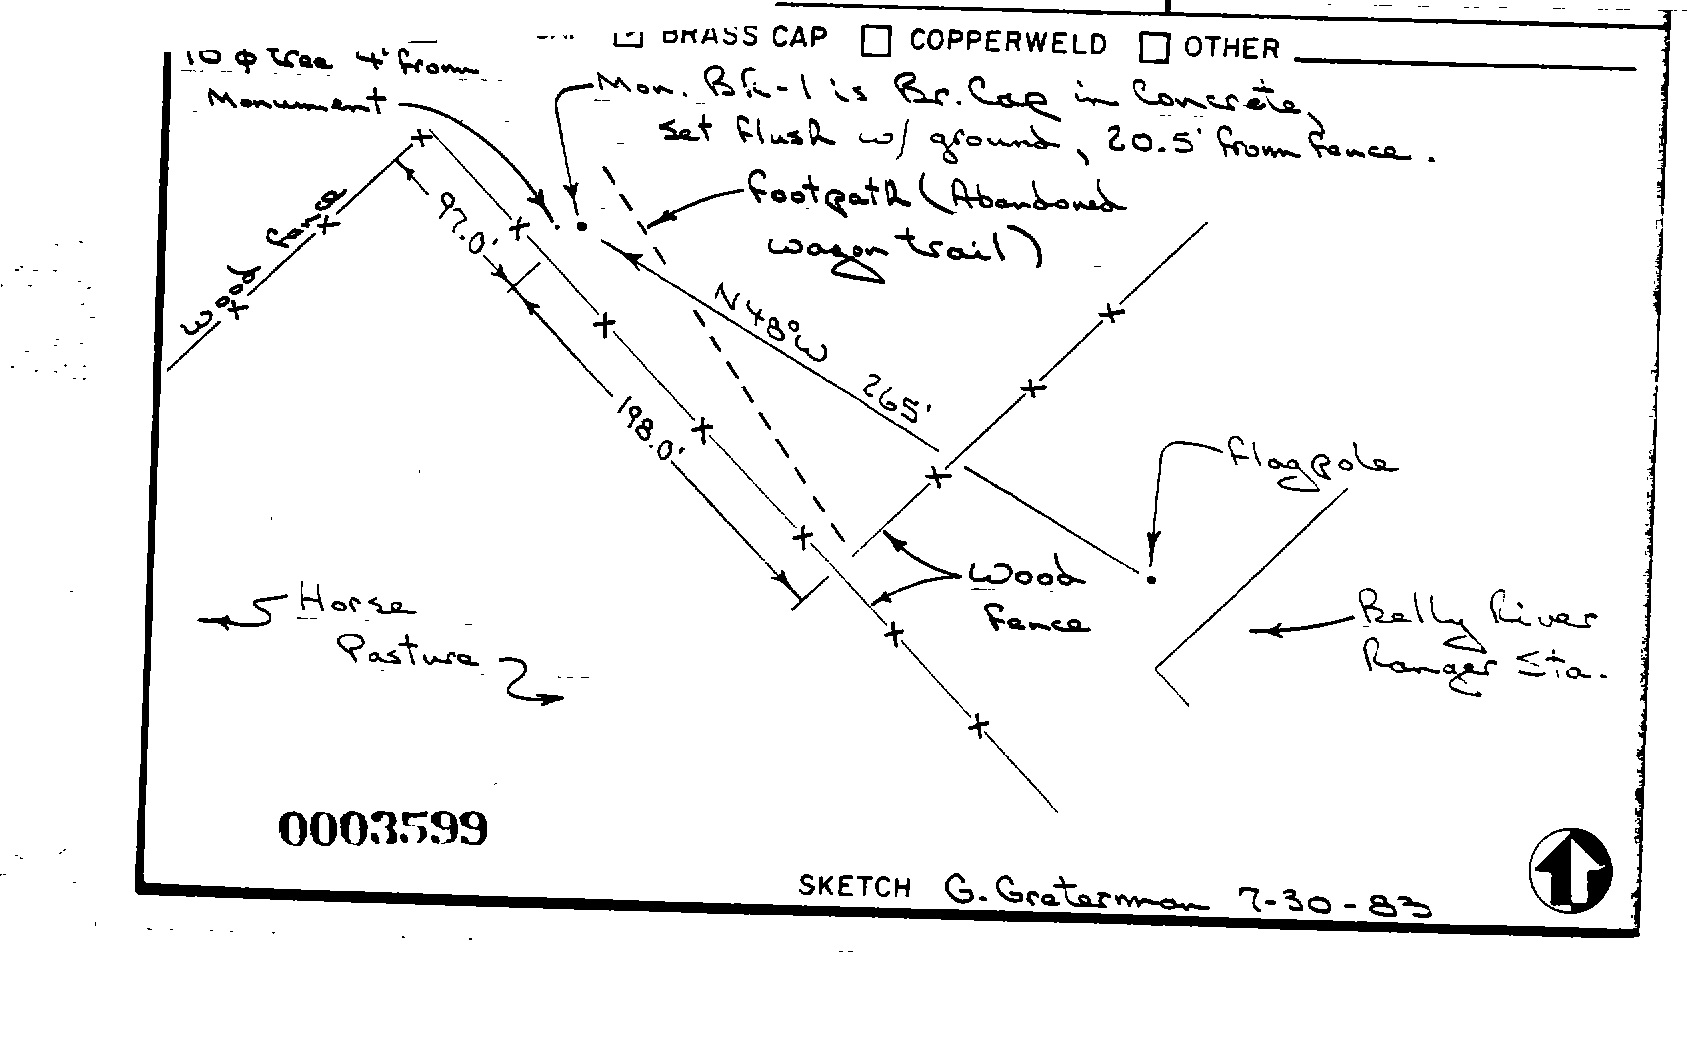 BRASS CAP COPPERWELD OTHER
10 φ tree 4' from
Monument
Mon. BR-1 is Br. Cap in Concrete,
set flush w/ ground, 20.5' from fence.
Footpath (Abandoned
wagon trail)
Wood fence
97.0'
N48°W 265'
198.0'
Flagpole
Wood
Fence
Horse
Pasture
Belly River
Ranger Sta.
0003599
SKETCH G. Greterman 7-30-83